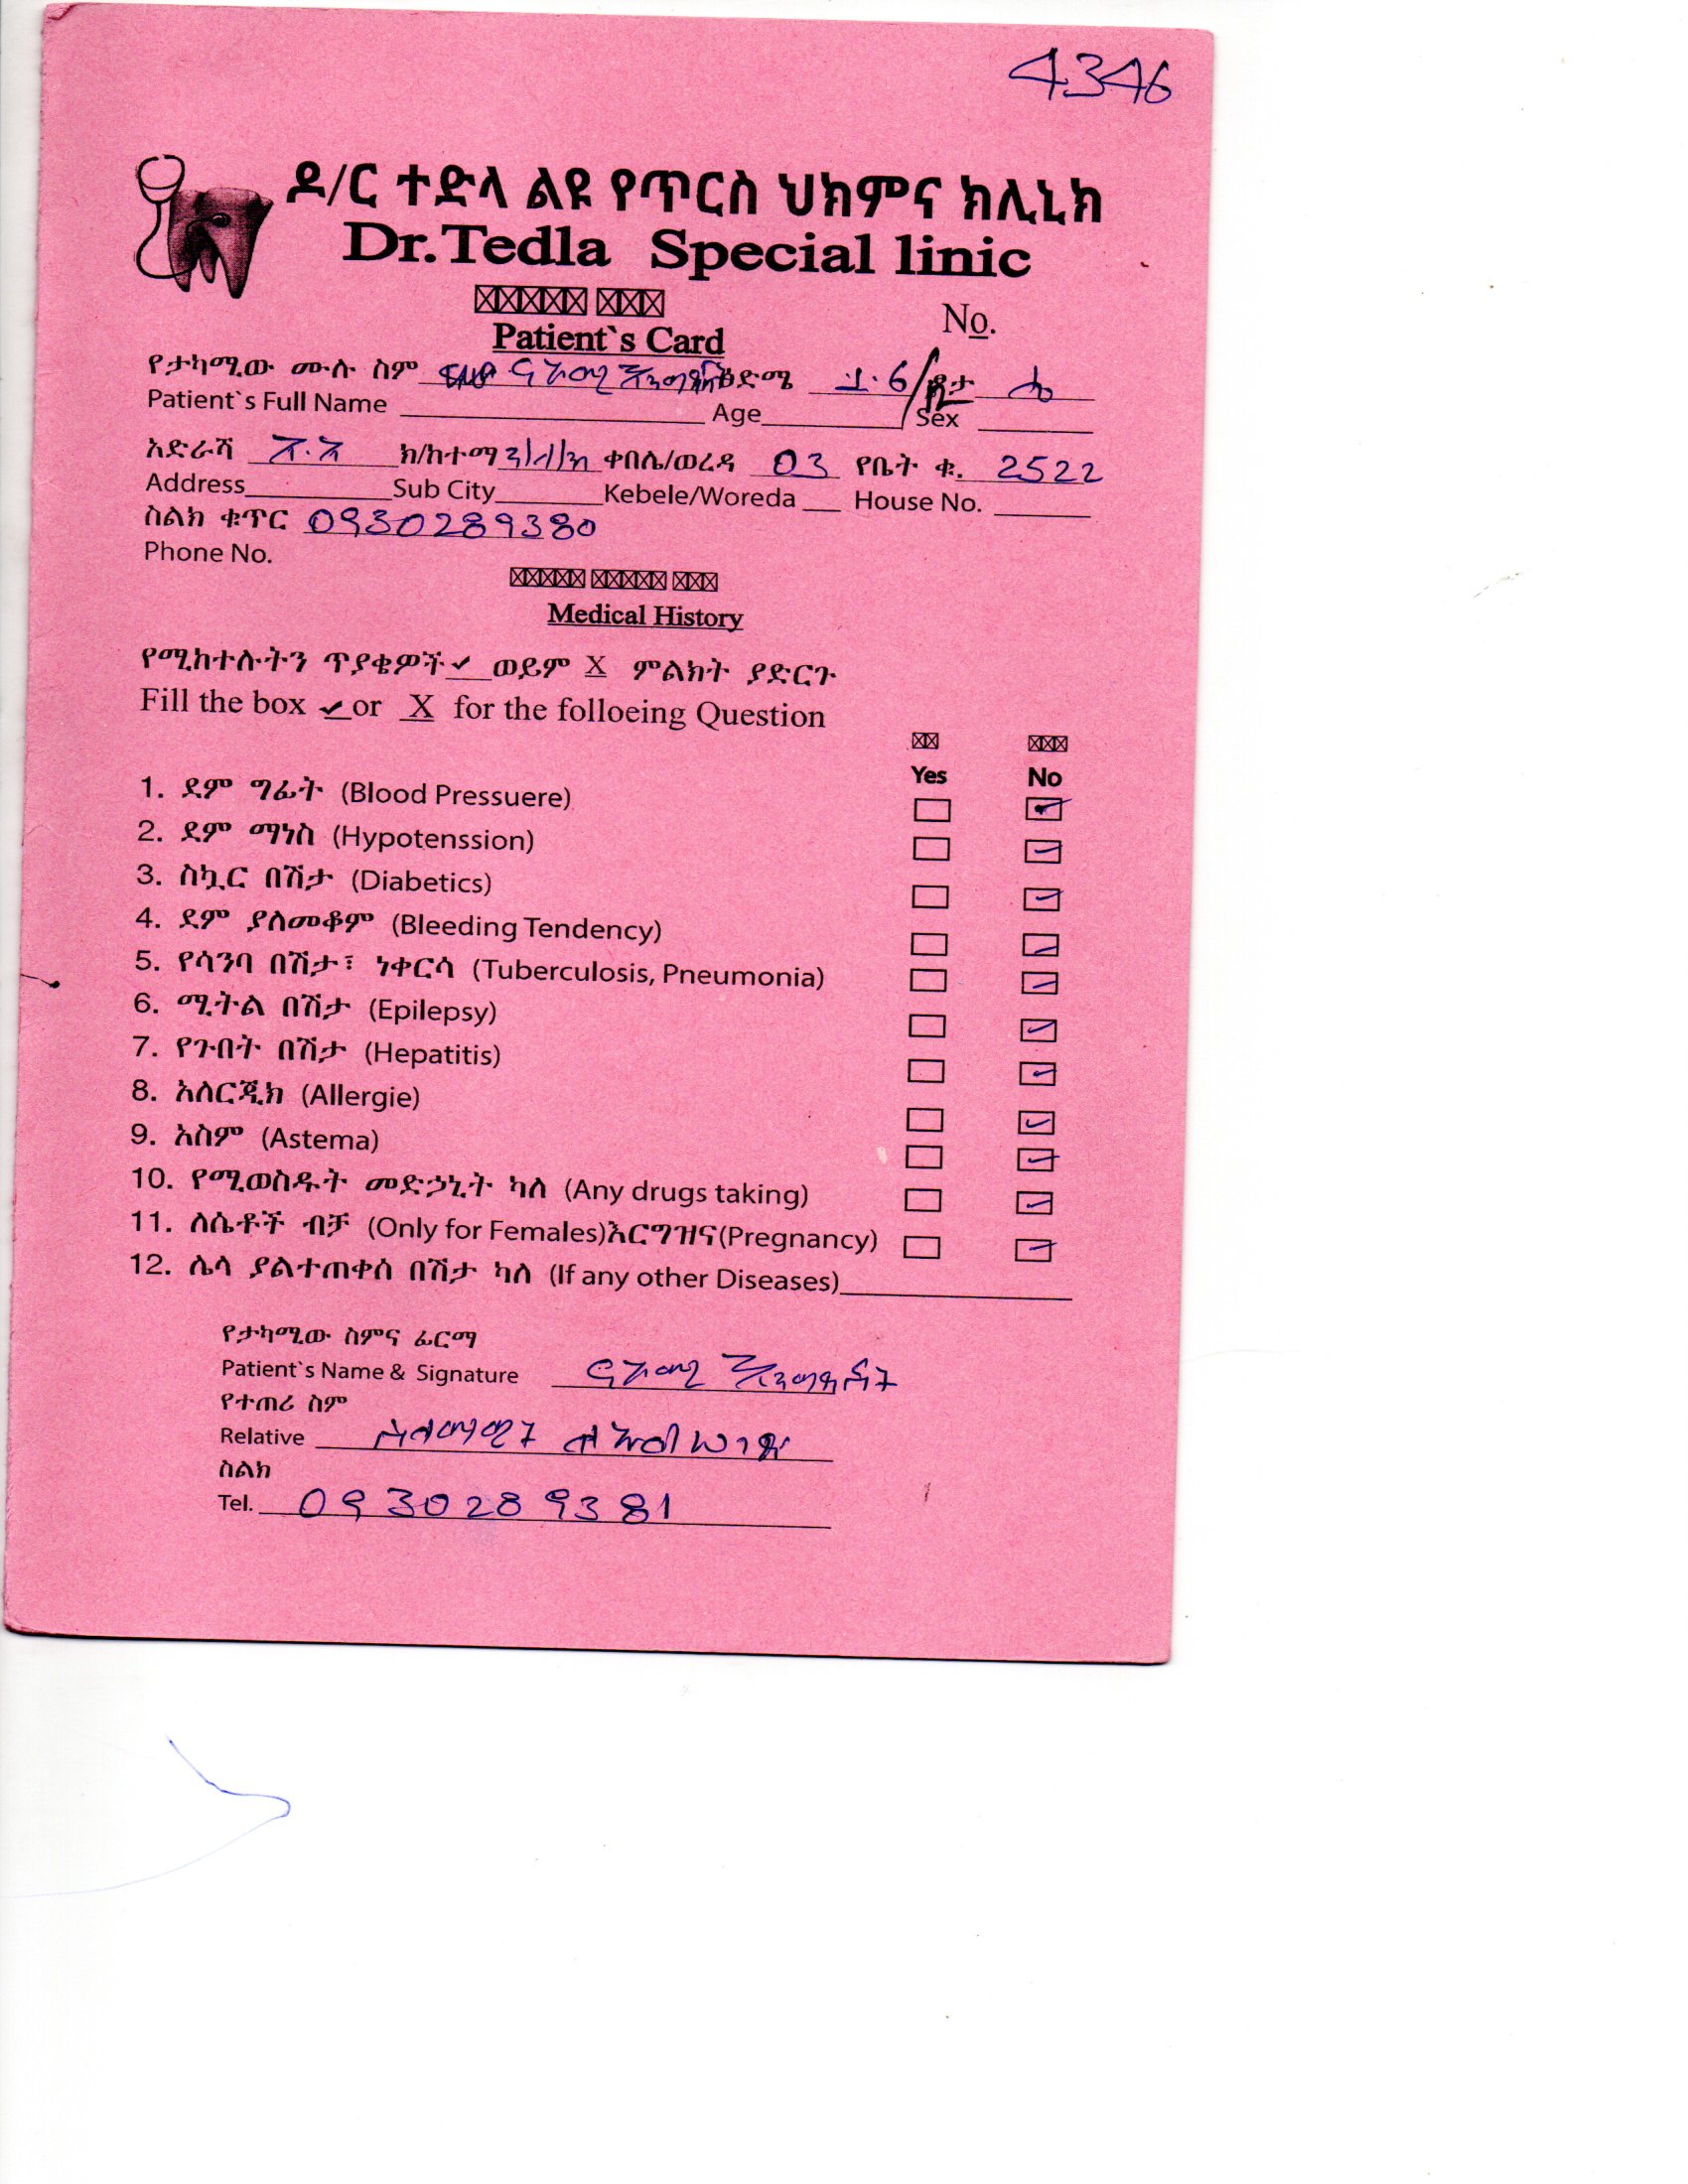 4346
ዶ/ር ተድላ ልዩ የጥርስ ህክምና ክሊኒክ
Dr. Tedla Special linic
Patient`s Card No.
የታካሚው ሙሉ ስም ናኦሚ ዕድሜ 1.6/ ፆታ ሴ
Patient`s Full Name Age Sex
አድራሻ አ.አ ክ/ከተማ ቀበሌ/ወረዳ 03 የቤት ቁ. 2522
Address Sub City Kebele/Woreda House No.
ስልክ ቁጥር 0930289380
Phone No.
Medical History
የሚከተሉትን ጥያቄዎች ✓ ወይም X ምልክት ያድርጉ
Fill the box ✓ or X for the folloeing Question
Yes No
1. ደም ግፊት (Blood Pressuere)
2. ደም ማነስ (Hypotenssion)
3. ስኳር በሽታ (Diabetics)
4. ደም ያለመቆም (Bleeding Tendency)
5. የሳንባ በሽታ፣ ነቀርሳ (Tuberculosis, Pneumonia)
6. ሚትል በሽታ (Epilepsy)
7. የጉበት በሽታ (Hepatitis)
8. አለርጂክ (Allergie)
9. አስም (Astema)
10. የሚወስዱት መድኃኒት ካለ (Any drugs taking)
11. ለሴቶች ብቻ (Only for Females)እርግዝና(Pregnancy)
12. ሌላ ያልተጠቀሰ በሽታ ካለ (If any other Diseases)
የታካሚው ስምና ፊርማ
Patient`s Name & Signature ናኦሚ
የተጠሪ ስም
Relative ሰላማዊት
ስልክ
Tel. 0930289381